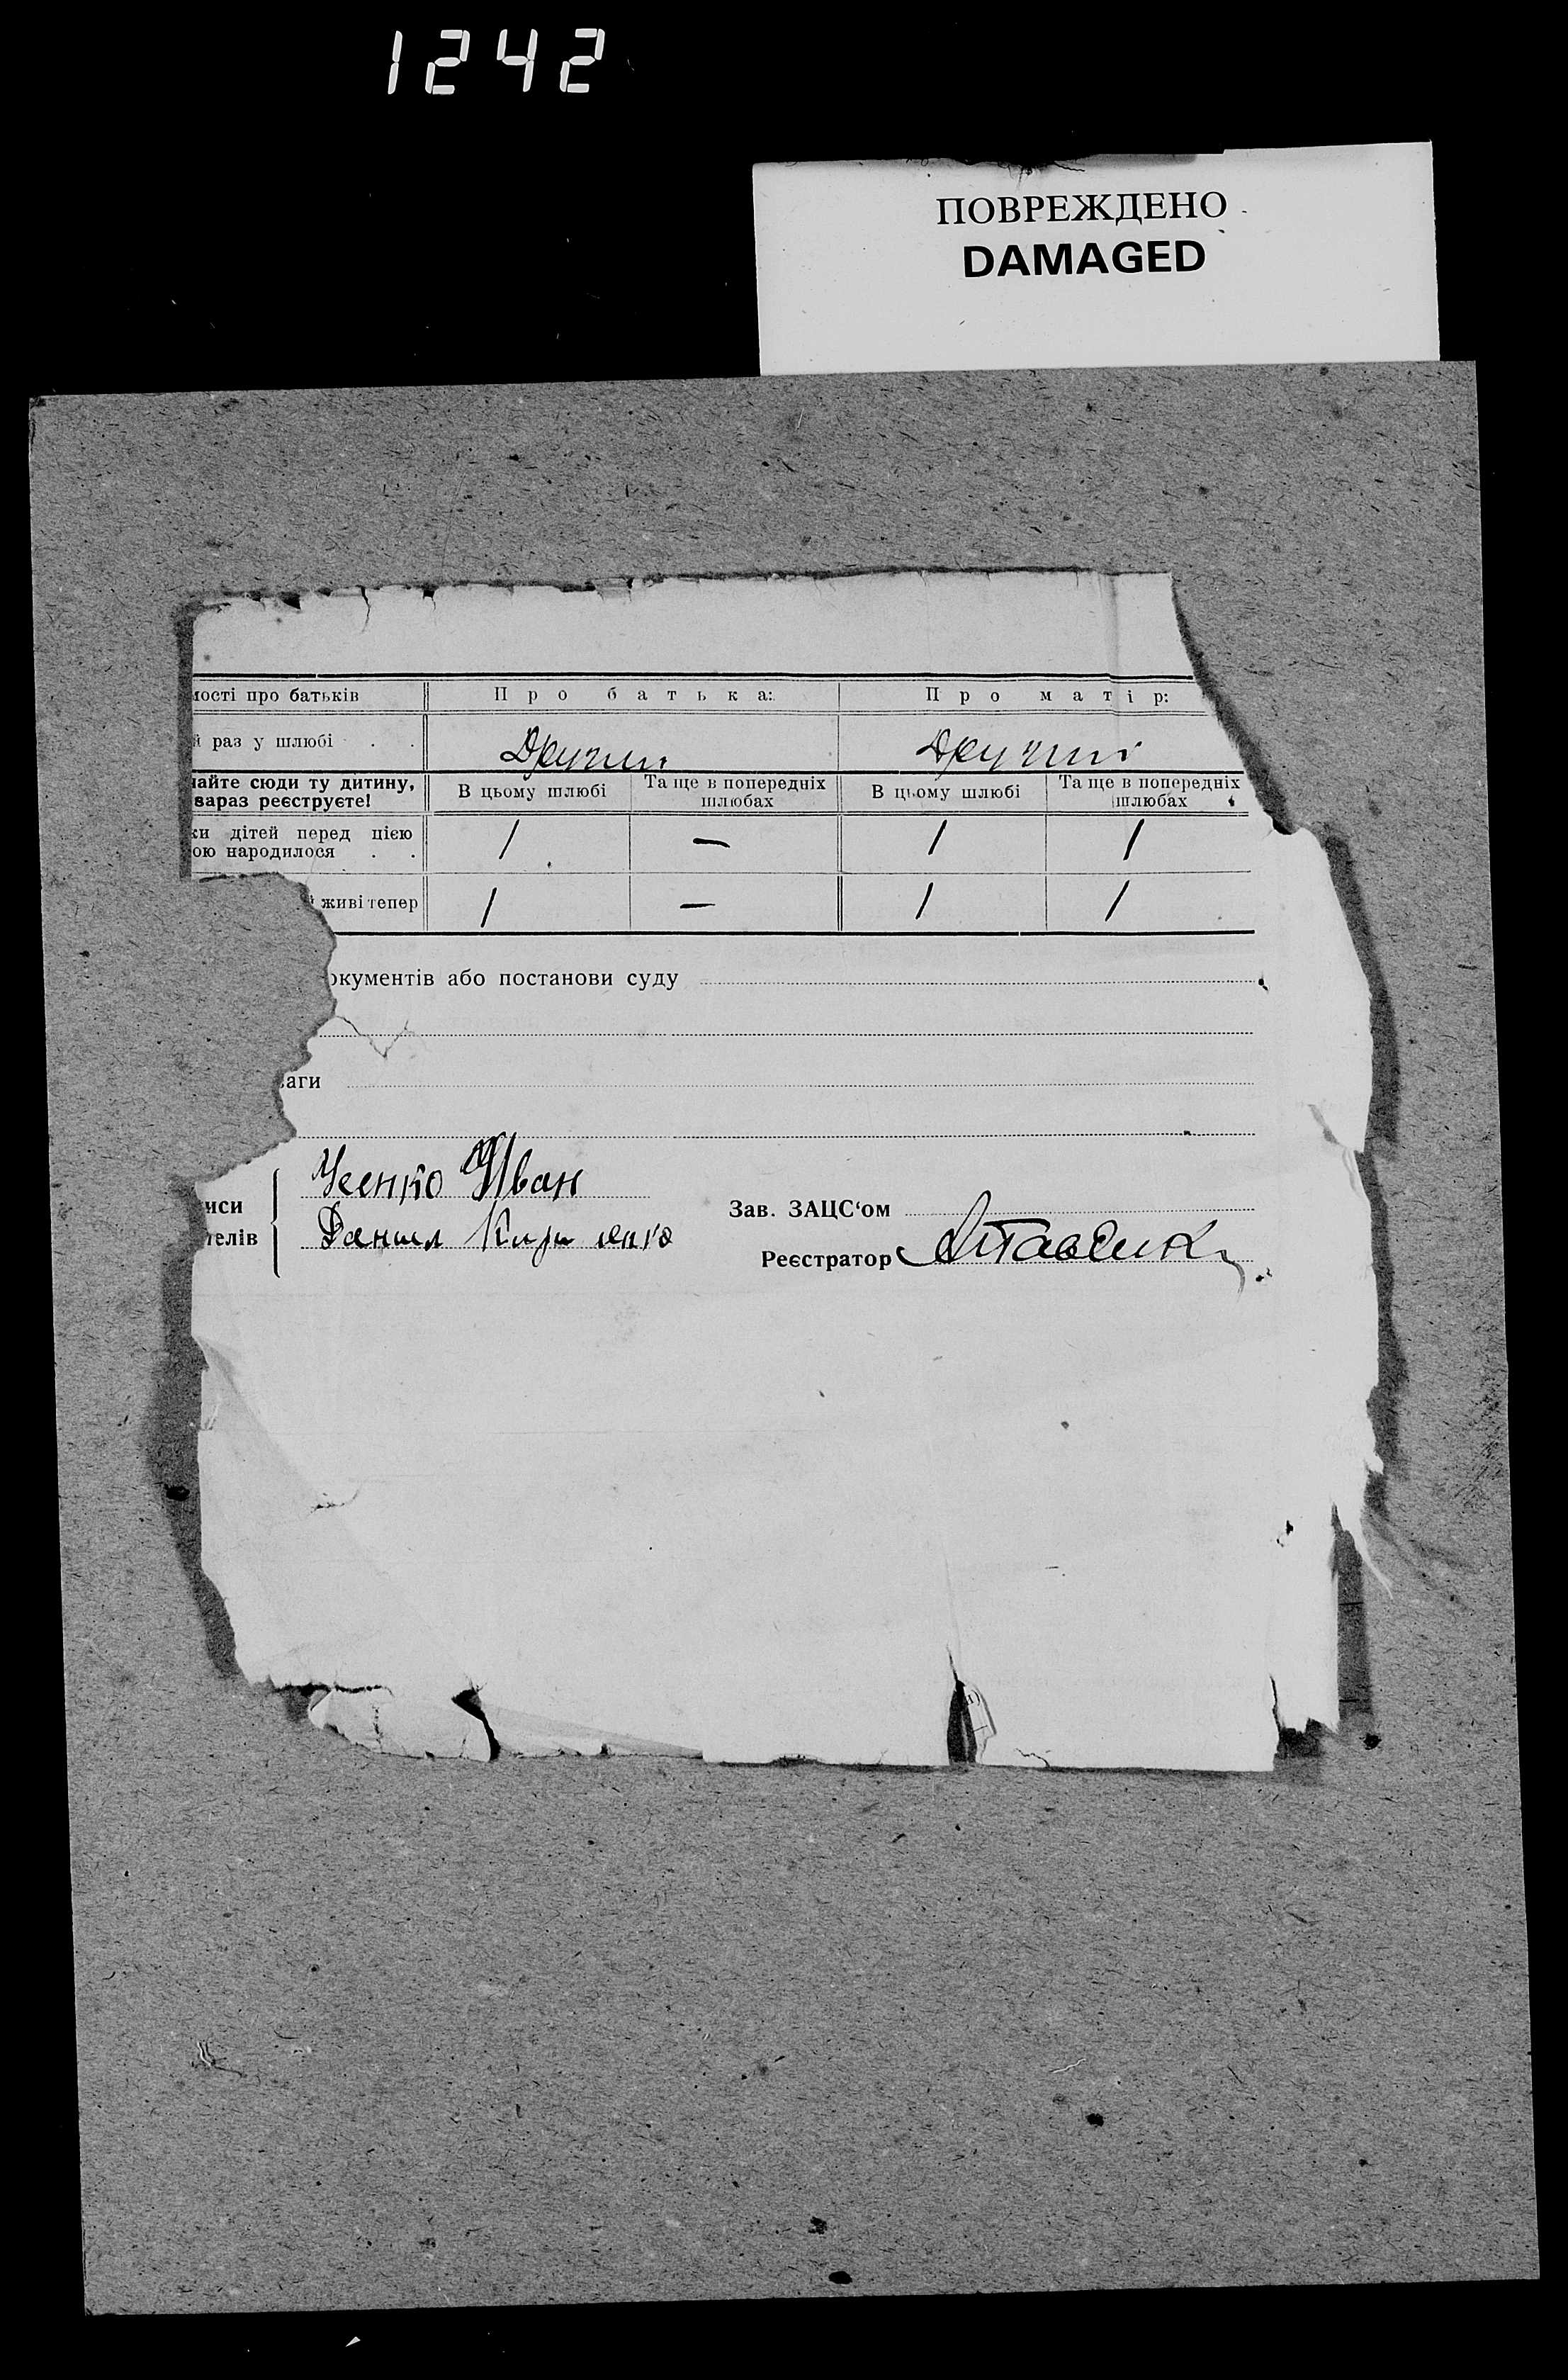 1242
ПОВРЕЖДЕНО
DAMAGED
мості про батьків Про батька: Про матір:
й раз у шлюбі . . Другий Другий
чайте сюди ту дитину,
зараз реєструєте!
В цьому шлюбі Та ще в попередніх шлюбах В цьому шлюбі Та ще в попередніх шлюбах
ки дітей перед цією
ою народилося . . 1 — 1 1
й живі тепер 1 — 1 1
окументів або постанови суду
ваги
иси Усенко Иван
Зав. ЗАЦС‘ом
телів Данил
Реєстратор